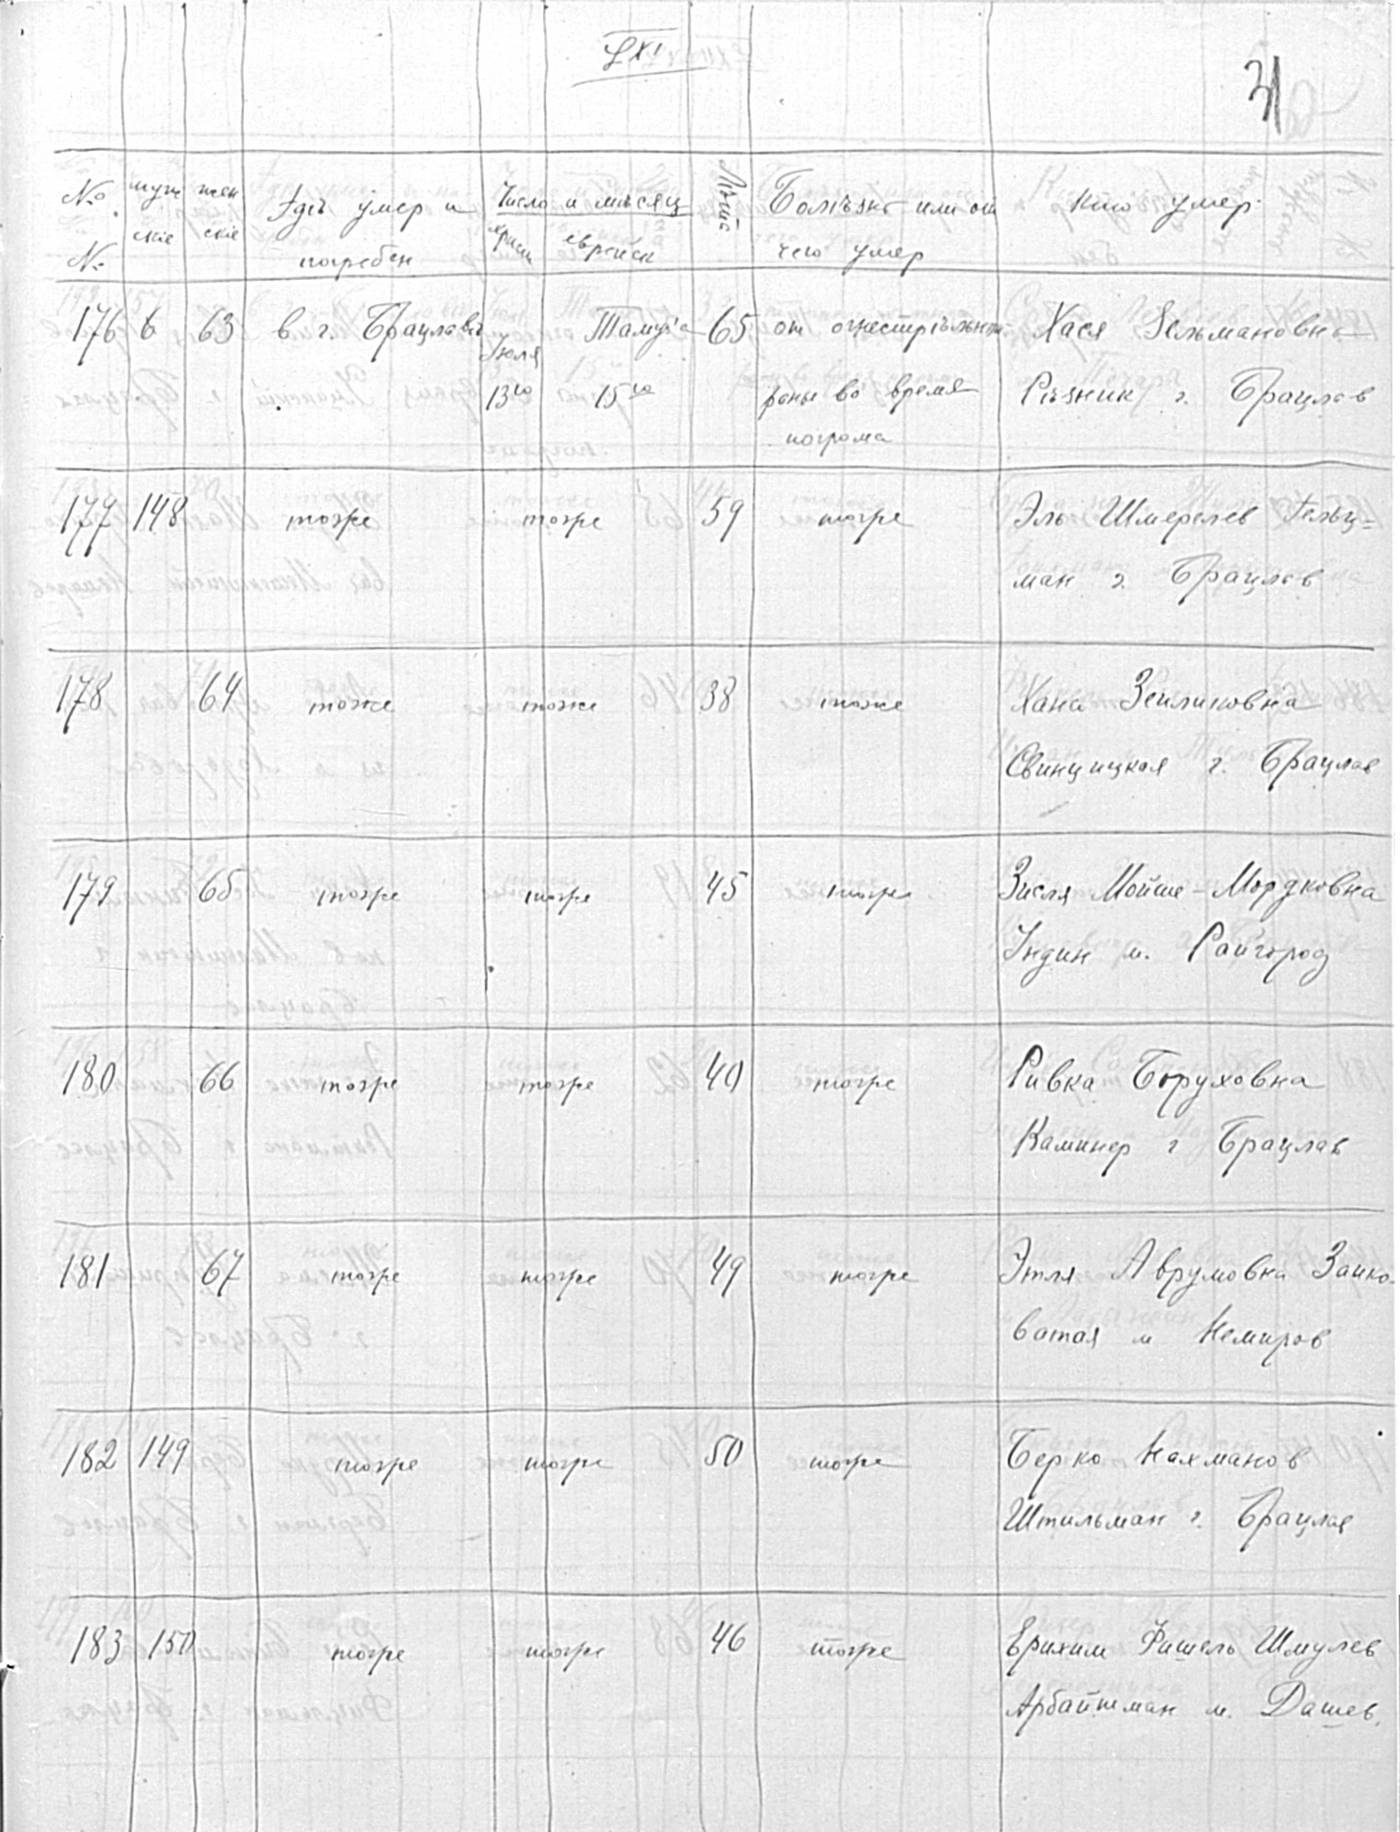 LXI
31
№ № мужскіе женскіе Гдѣ умер и погребен Число и мѣсяц христ еврейск Лѣта Болѣзнь или от чего умер Кто умер
176 63 в г. Брацлавѣ Іюля Тамуза 65 от огнестрѣльной Хася Зельмановна
13го 15го раны во время Рѣзник г. Брацлав
погрома
177 148 тоже тоже 59 тоже Эль Шмерелев Гельц-
ман г. Брацлав
178 64 тоже тоже 38 тоже Хана Зейликовна
Свинцицкая г. Брацлав
179 65 тоже тоже 45 тоже Зисля Мойше-Мордковна
Індин м. Райгород
180 66 тоже тоже 40 тоже Ривка Боруховна
Каминер г Брацлав
181 67 тоже тоже 49 тоже Этля Аврумовна Заико-
ватая м Немиров
182 149 тоже тоже 50 тоже Берко Нахманов
Штильман г. Брацлав
183 150 тоже тоже 46 тоже Ерихим Фишель Шмулев
Арбайтман м. Дашев.